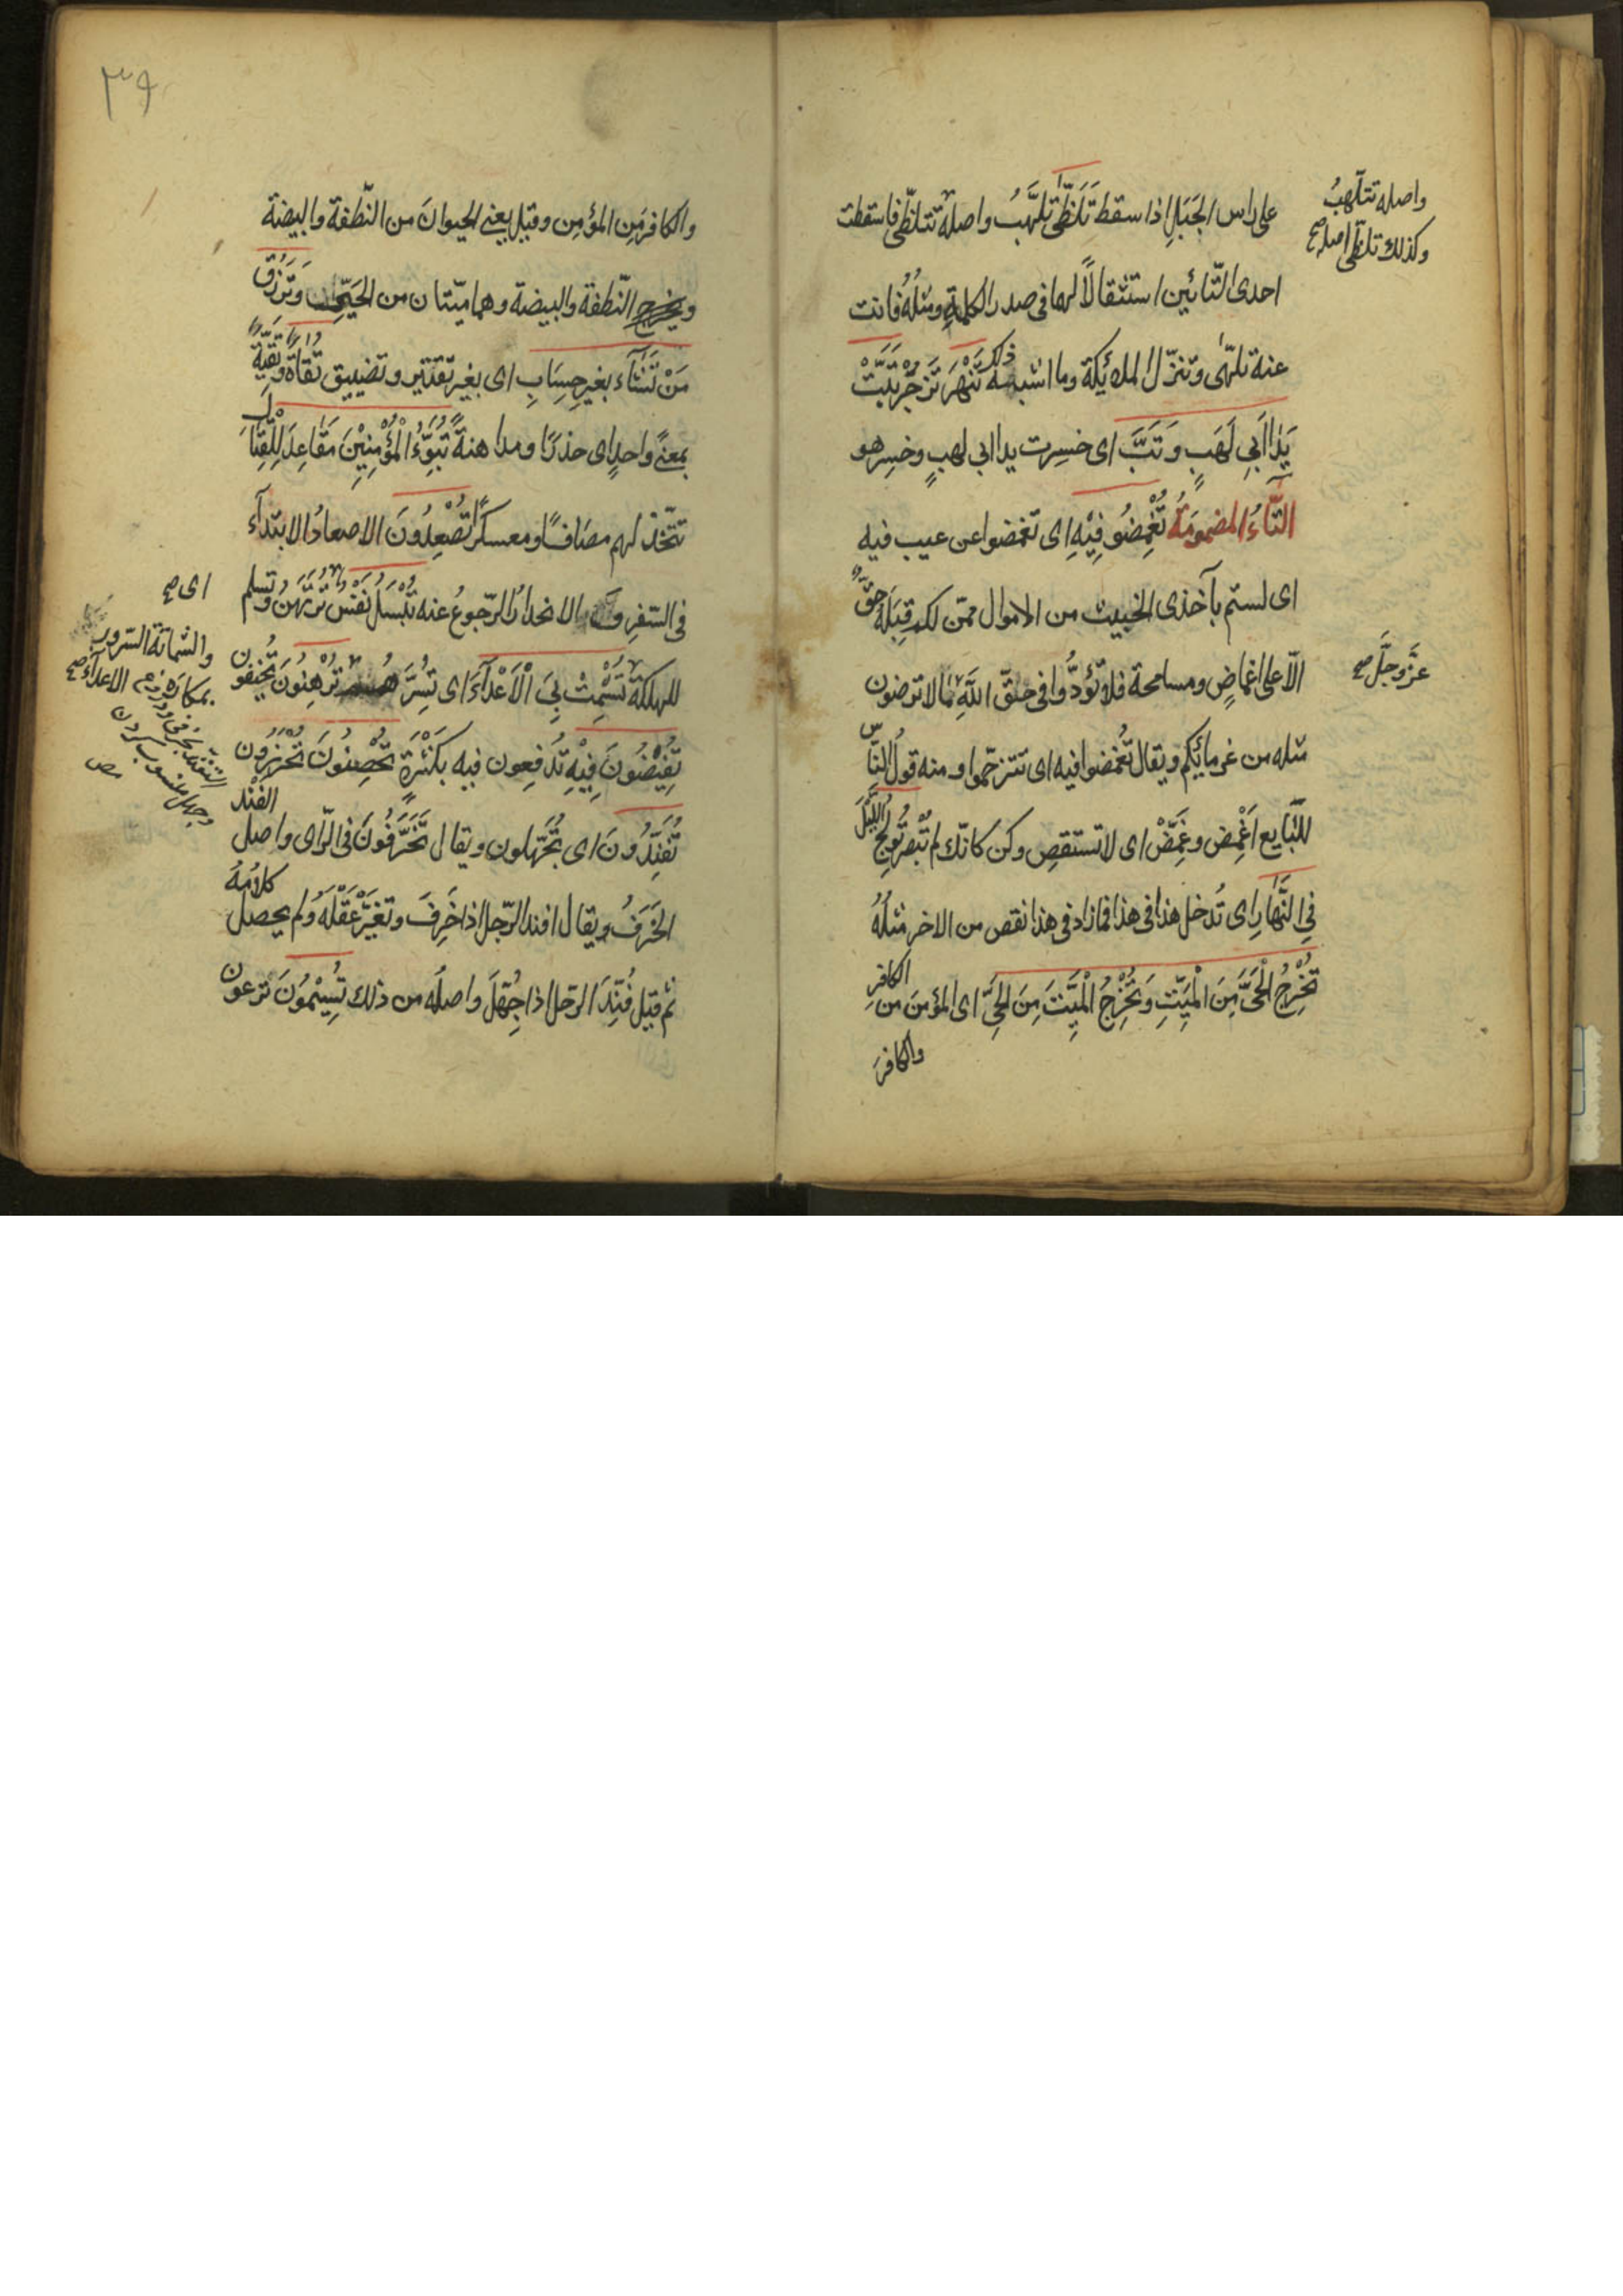 على راس الجَبَلِ اذا سقط تَلَظّٰى تَلَهَّبُ واصله تتلظّى فاسقطت
احدى التّائين استثقالًا لهما فى صدر الكلمةِ ومثلُهُ فانت
عنه تلهّٰى وتنزّل الملئكة وما اشبه ذلك تَنْهَرَ تَزْجُرْ تَبَّتْ
يَدٰا اَبِى لَهَبٍ وَتَبَّ اى خسِرت يدا ابى لهبٍ وخسِر هو
التّاءُ المضمومَةُ تُغْمِضُو فِيْهِ اى تغمضوا عن عيب فيه
اى لستم بآخذى الخبيث من الاموال ممّن لكم قِبَلَهُ حقٌّ
الّا على اغماضٍ ومسامحة فلا تؤدُّوا فى حقّ اللّهِ ما لا ترضون
مثله من غرمائكم ويقال تُغمضوا فيه اى تترخّصوا ومنه قول النّاس
للبّايع اَغْمِض وغَمِّضْ اى لا تستقصِ وكن كانّك لم تُبْصِرْ تُولِجُ اللَّيْلَ
فِى النَّهٰارِ اى تُدخل هذا فى هذا فما زاد فى هذا نقص من الاخر مثلُهُ
تُخْرِجُ الْحَىَّ مِنَ الْمَيِّتِ وَتُخْرِجُ الْمَيِّتَ مِنَ الْحَىِّ اى المؤمنَ من الكافرِ
والكافرَ
واصله تتلهّبُ
وكذلك تلظّى اصله صح
عزَّ وجلَّ صح
٣٩
والكافرَ مِن المؤمِن وقيل يعنى الحيوانَ من النّطفة والبيضة
ويخرج النّطفة والبيضة وهما ميّتان من الحَىِّ وَتَرْزُقُ
مَنْ تَشٰآءُ بغيرِ حِسَابٍ اى بغير تقتير وتضييق تُقَاةً وَتَقِيَّةً
بمعنًى واحدٍ اى حذرًا ومداهنةً تُبَوِّءُ الْمُؤْمِنِيْنَ مَقٰاعِدَ لِلْقِتَالِ
تتّخذ لهم مصَافًّا ومعسكرًا تُصْعِدُونَ الاصعادُ الابتدآء
فى السّفرِ والانحدارُ الرّجوعُ عنه تُبْسَلُ نَفْسٌ تُرْتَهَنُ وتسلم
للهلكة تُشْمِتْ بِىَ الْاَعْدَآءَ اى تَسُرَّ تُرْهِبُوْنَ تُخِيفون
تُفِيْضُونَ فِيْهِ تُدفِعون فيه بكَثْرَةٍ تُحْصِنُونَ تُحْرِزُون
تُفَنِّدُونَ اى تُجَهِّلون ويقال تُخَرِّفُونَ فى الرّاى واصل الفَنْد
الخَرَفُ ويقال افند الرّجل اذا خَرِفَ وتغيَّرَ عَقْلُهُ ولم يحصل كلامُهُ
ثم قيل فُنِّدَ الرّجل اذا جُهِّلَ واصلُه من ذلك تُسِيْمُوْنَ تَرعون
اى صح
والشماتة السّرورُ
بمكاره الاعدآء صح